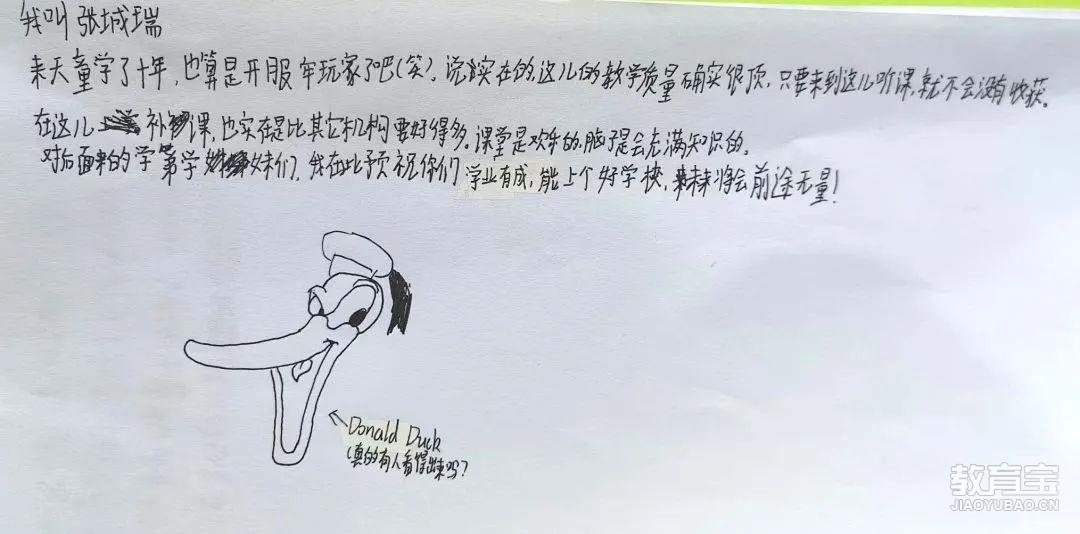 我叫张城瑞
来天童学了十年，也算是开服牢玩家了吧(笑)。说实在的，这儿的教学质量确实很顶，只要来到这儿听课，就不会没有收获。
在这儿补课，也实在是比其它机构要好得多。课堂是欢乐的，脑子是会充满知识的。
对后面来的学弟学妹们，我在此予祝你们学业有成，能上个好学校，未来将会前途无量！
Donald Duck
(真的有人看得出来吗？
教育宝
JIAOYUBAO.CN